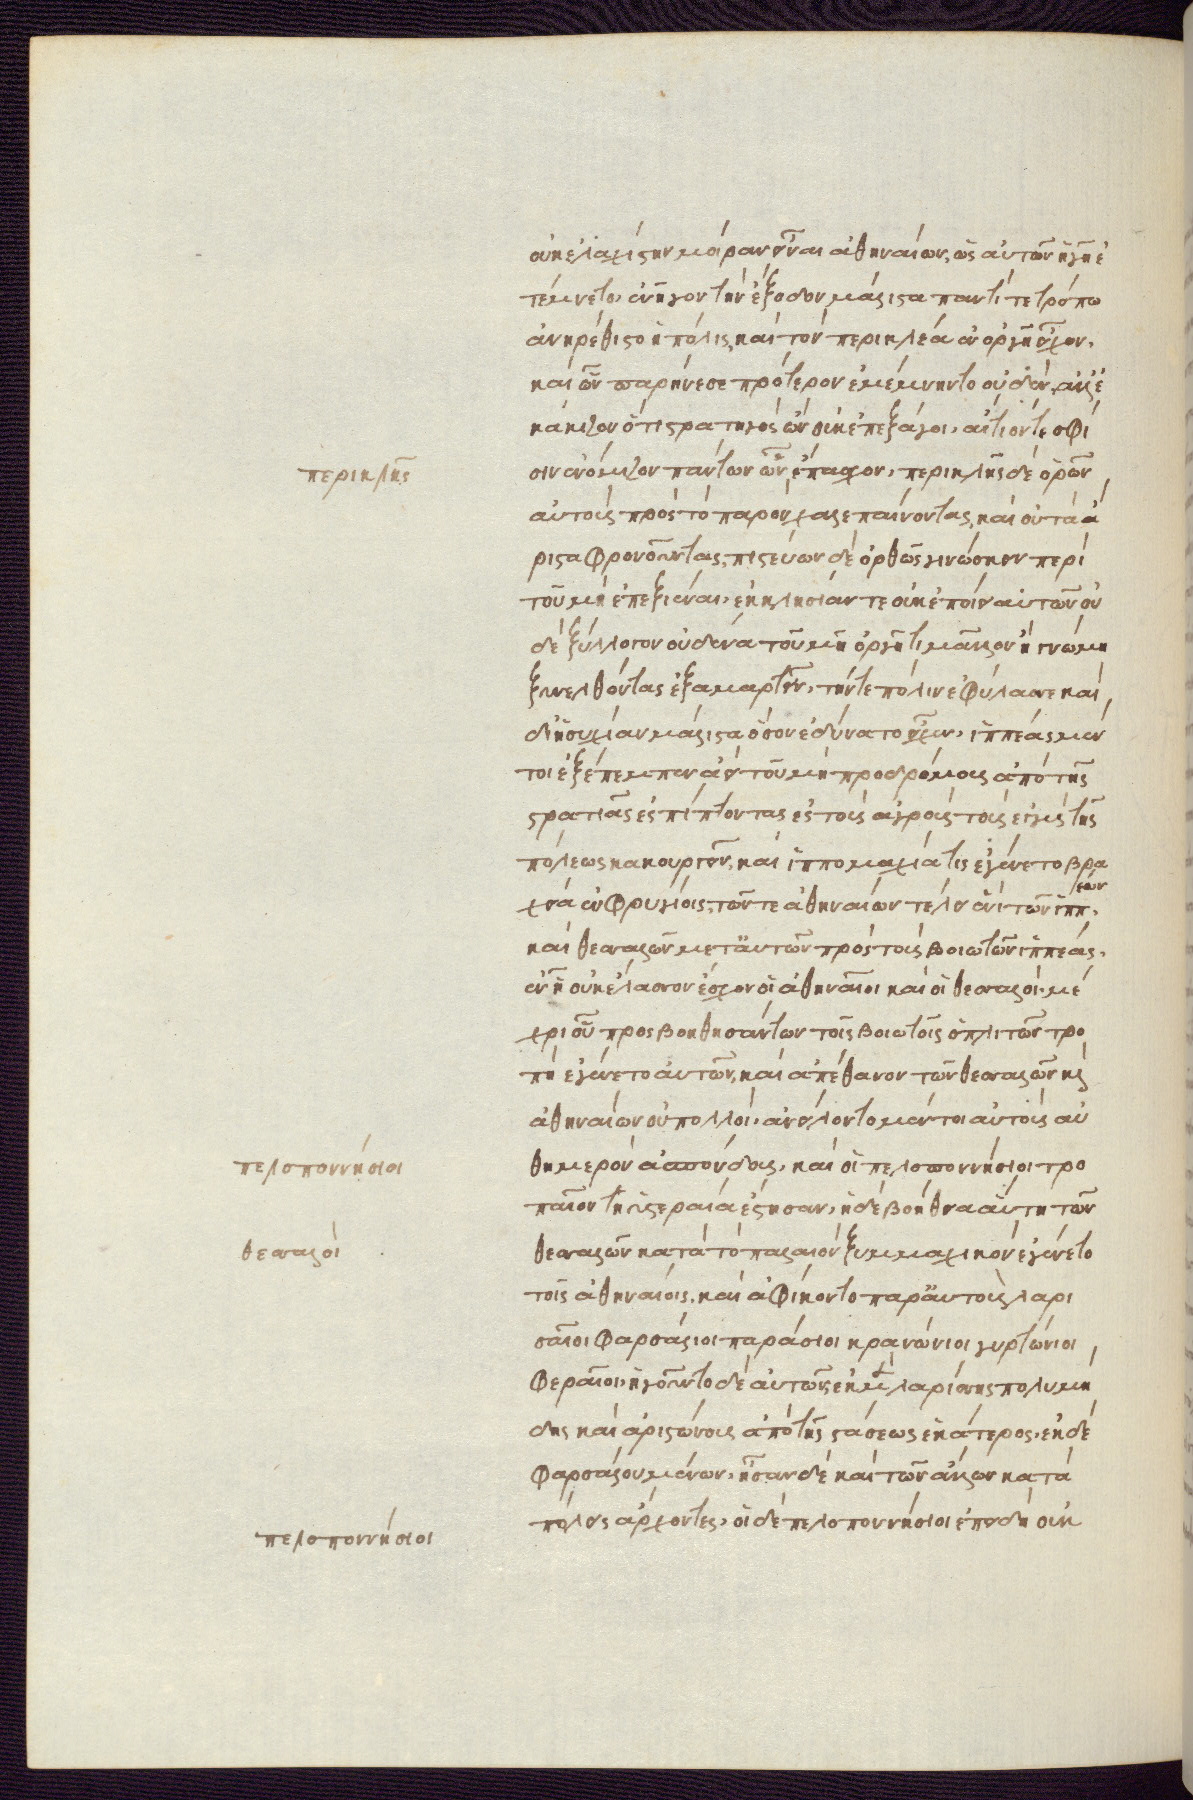 οὐκ ἐλαχίστην μοίραν εἶναι ἀθηναίων, ὡς αὐτῶν ἡ γῆ ἐ
τέμνετο, ἐνῆγον τὴν ἔξοδον μάλιστα παντί τε τρόπω
ἀνηρέθιστο ἡ πόλις, καὶ τὸν περικλέα ἐν ὀργῆ εἶχον,
καὶ ὧν παρήνεσε πρότερον ἐμέμνηντο οὐδέν, ἀλλ' ἐ
κάκιζον ὅτι στρατηγὸς ὢν οὐκ ἐπεξάγοι, αἴτιόν τε σφί
σιν ἐνόμιζον πάντων ὧν ἔπασχον, περικλῆς δὲ ὁρῶν
περικλῆς
αὐτοὺς πρὸς τὸ παρὸν χαλεπαίνοντας, καὶ οὐ τὰ ἄ
ριστα φρονοῦντας, πιστεύων δὲ ὀρθῶς γινώσκειν περὶ
τοῦ μὴ ἐπεξιέναι, ἐκκλησίαν τε οὐκ ἐποίει αὐτῶν οὐ
δὲ ξύλλογον οὐδένα τοῦ μὴ ὀργῆ τι μᾶλλον ἢ γνώμη
ξυνελθόντας ἐξαμαρτεῖν, τήν τε πόλιν ἐφύλασσε καὶ
δι' ἡσυχίαν μάλιστα ὅσον ἐδύνατο εἶχεν, ἱππέας μέν
τοι ἐξέπεμπεν ἀεὶ τοῦ μὴ προδρόμους ἀπὸ τῆς
στρατιᾶς ἐσπίπτοντας ἐς τοὺς ἀγροὺς τοὺς ἐγγὺς τῆς
πόλεως κακουργεῖν, καὶ ἱππομαχία τις ἐγένετο βρα
χεῖα ἐν φρυγίοις, τῶν τε ἀθηναίων τέλει ἑνὶ τῶν ἱππέων,
καὶ θεσσαλῶν μετ' αὐτῶν πρὸς τοὺς βοιωτῶν ἱππέας,
ἐν ἧ οὐκ ἔλασσον ἔσχον οἱ ἀθηναῖοι καὶ οἱ θεσσαλοί, μέ
χρι οὗ προσβοηθησάντων τοῖς βοιωτοῖς ὁπλιτῶν τρο
πὴ ἐγένετο αὐτῶν, καὶ ἀπέθανον τῶν θεσσαλῶν καὶ
ἀθηναίων οὐ πολλοί, ἀνείλοντο μέντοι αὐτοὺς αὐ
θημερὸν ἀσπόνδους, καὶ οἱ πελοποννήσιοι τρο
πελοποννήσιοι
παῖον τῆ ὑστεραία ἔστησαν, ἡ δὲ βοήθεια αὕτη τῶν
θεσσαλῶν κατὰ τὸ παλαιὸν ξυμμαχικὸν ἐγένετο
θεσσαλοί
τοῖς ἀθηναίοις, καὶ ἀφίκοντο παρ' αὐτοὺς λαρι
σαῖοι φαρσάλιοι παράσιοι κρανώνιοι γυρτώνιοι
φεραῖοι, ἡγοῦντο δὲ αὐτῶν, ἐκ μὲν λαρίσσης πολυμή
δης καὶ ἀριστώνους ἀπὸ τῆς στάσεως ἑκάτερος, ἐκ δὲ
φαρσάλου μένων, ἦσαν δὲ καὶ τῶν ἄλλων κατὰ
πόλεις ἄρχοντες, οἱ δὲ πελοποννήσιοι ἐπειδὴ οὐκ
πελοποννήσιοι